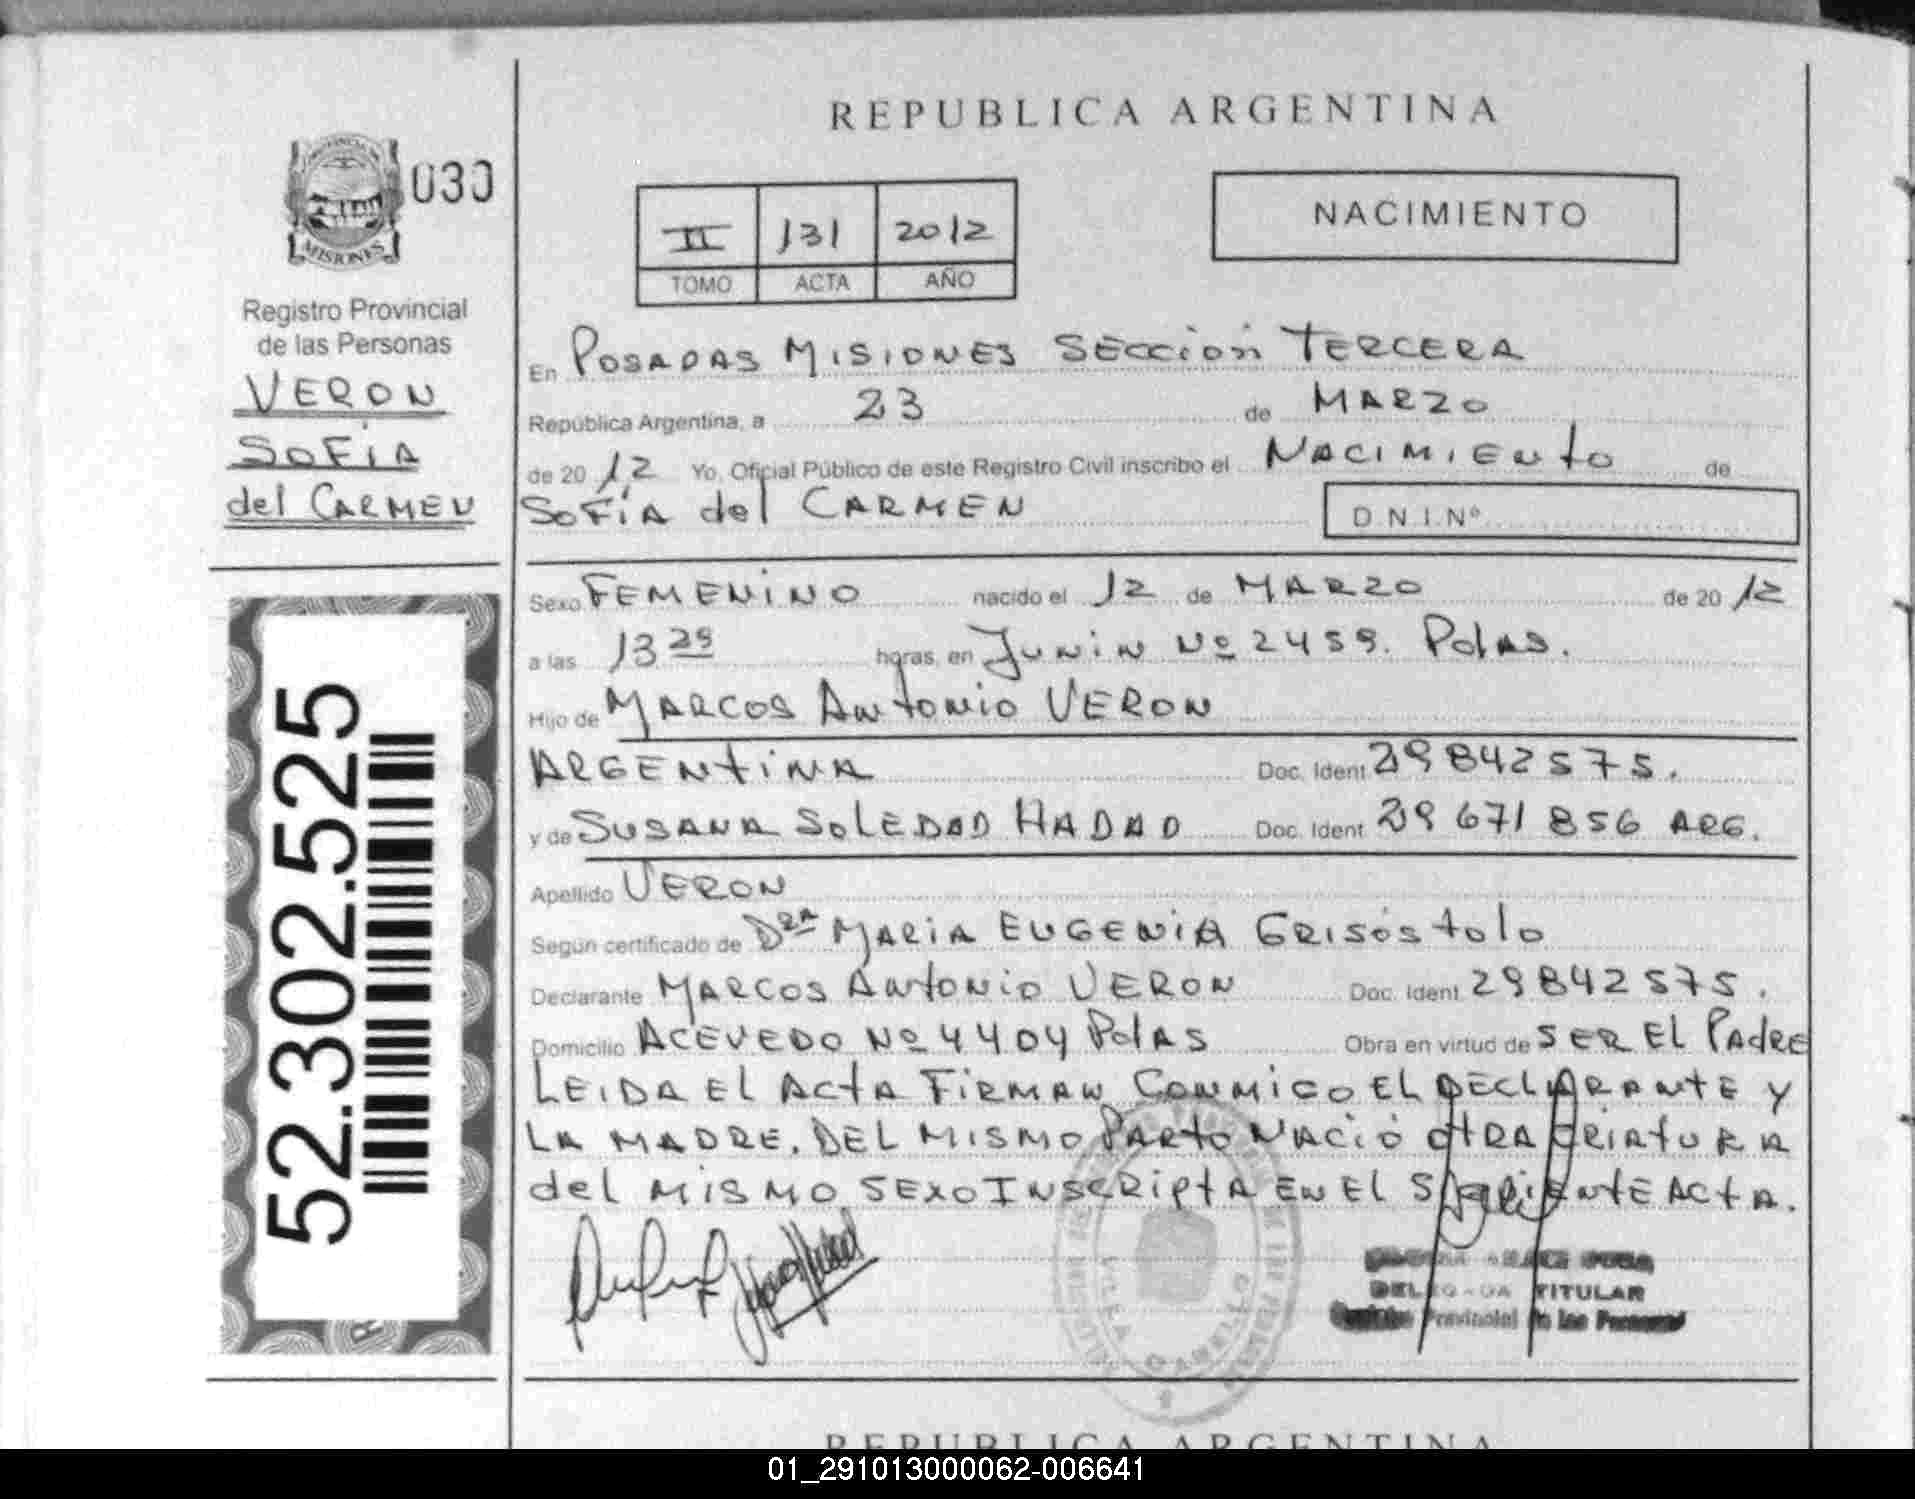 REPUBLICA ARGENTINA
030
MISIONES
Registro Provincial
de las Personas
VERON
SOFÍA
del CARMEN
52.302.525
II 131 2012
TOMO ACTA AÑO
NACIMIENTO
En POSADAS MISIONES SECCIÓN TERCERA
República Argentina, a 23 de MARZO
de 20 12 Yo, Oficial Público de este Registro Civil inscribo el NACIMIENTO de
SOFÍA del CARMEN D.N.I.Nº
Sexo FEMENINO nacido el 12 de MARZO de 20 12
a las 13 29 horas, en JUNIN Nº 2459. Pdas.
Hijo de MARCOS ANTONIO VERON
ARGENTINA Doc. Ident 29842575.
y de SUSANA SOLEDAD HADAD Doc. Ident 29671856 ARG.
Apellido VERON
Según certificado de DRA MARIA EUGENIA GRISÓSTOLO
Declarante MARCOS ANTONIO VERON Doc. Ident 29842575.
Domicilio ACEVEDO Nº 4404 PdAS Obra en virtud de SER EL PADRE
LEIDA EL ACTA FIRMAN CONMIGO EL DECLARANTE Y
LA MADRE. DEL MISMO PARTO NACIÓ OTRA CRIATURA
del MISMO SEXO INSCRIPTA EN EL SIGUIENTE ACTA.
TITULAR
Provincial de las Personas
REPUBLICA ARGENTINA
01_291013000062-006641